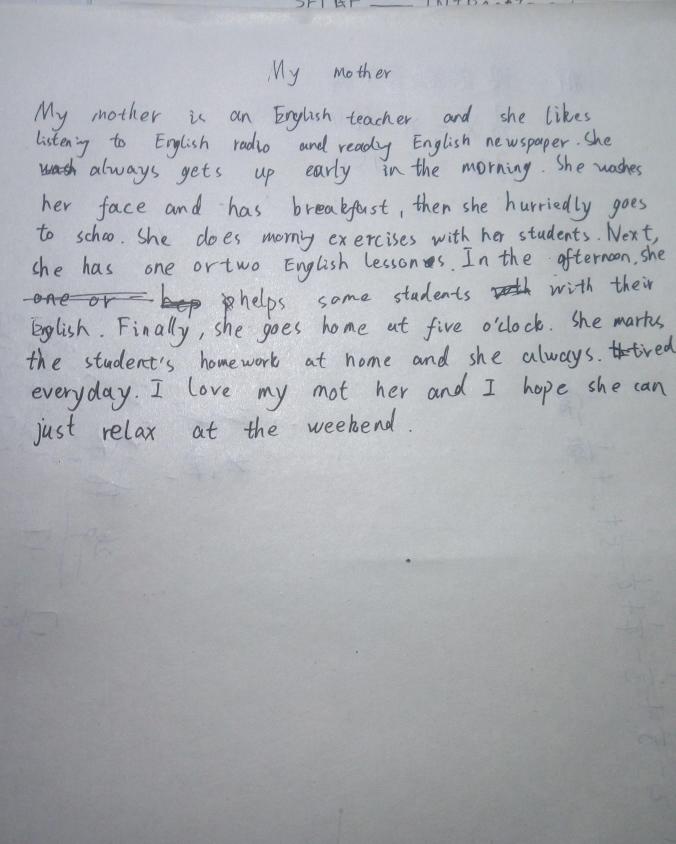 My mother
My mother is an English teacher and she likes
listening to English radio and ready English newspaper. She
always gets up early in the morning. She washes
her face and has breakfast, then she hurriedly goes
to schoo. She does morniy exercises with her students. Next,
she has one or two English lessones. In the afternoon, she
helps some students with their
English. Finally, she goes home at five o'clock. She marks
the student's homework at home and she always. tired
everyday. I love my mot her and I hope she can
just relax at the weekend.